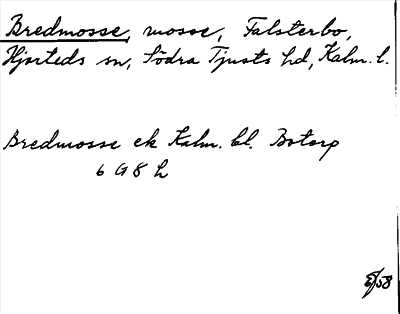 Bredmosse, mosse, Falsterbo,
Hjorteds sn, Södra Tjusts hd, Kalm. l.
Bredmosse ek Kalm. bl. Botorp
6 G 8 h
58